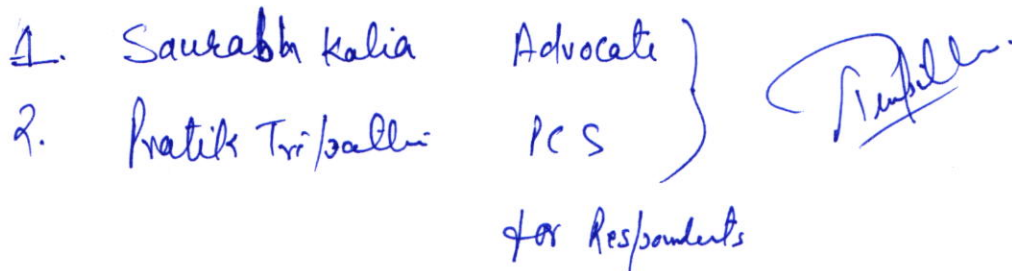 1. Saurabh Kalia Advocate
2. Pratik Tripathi PCS
for Respondents